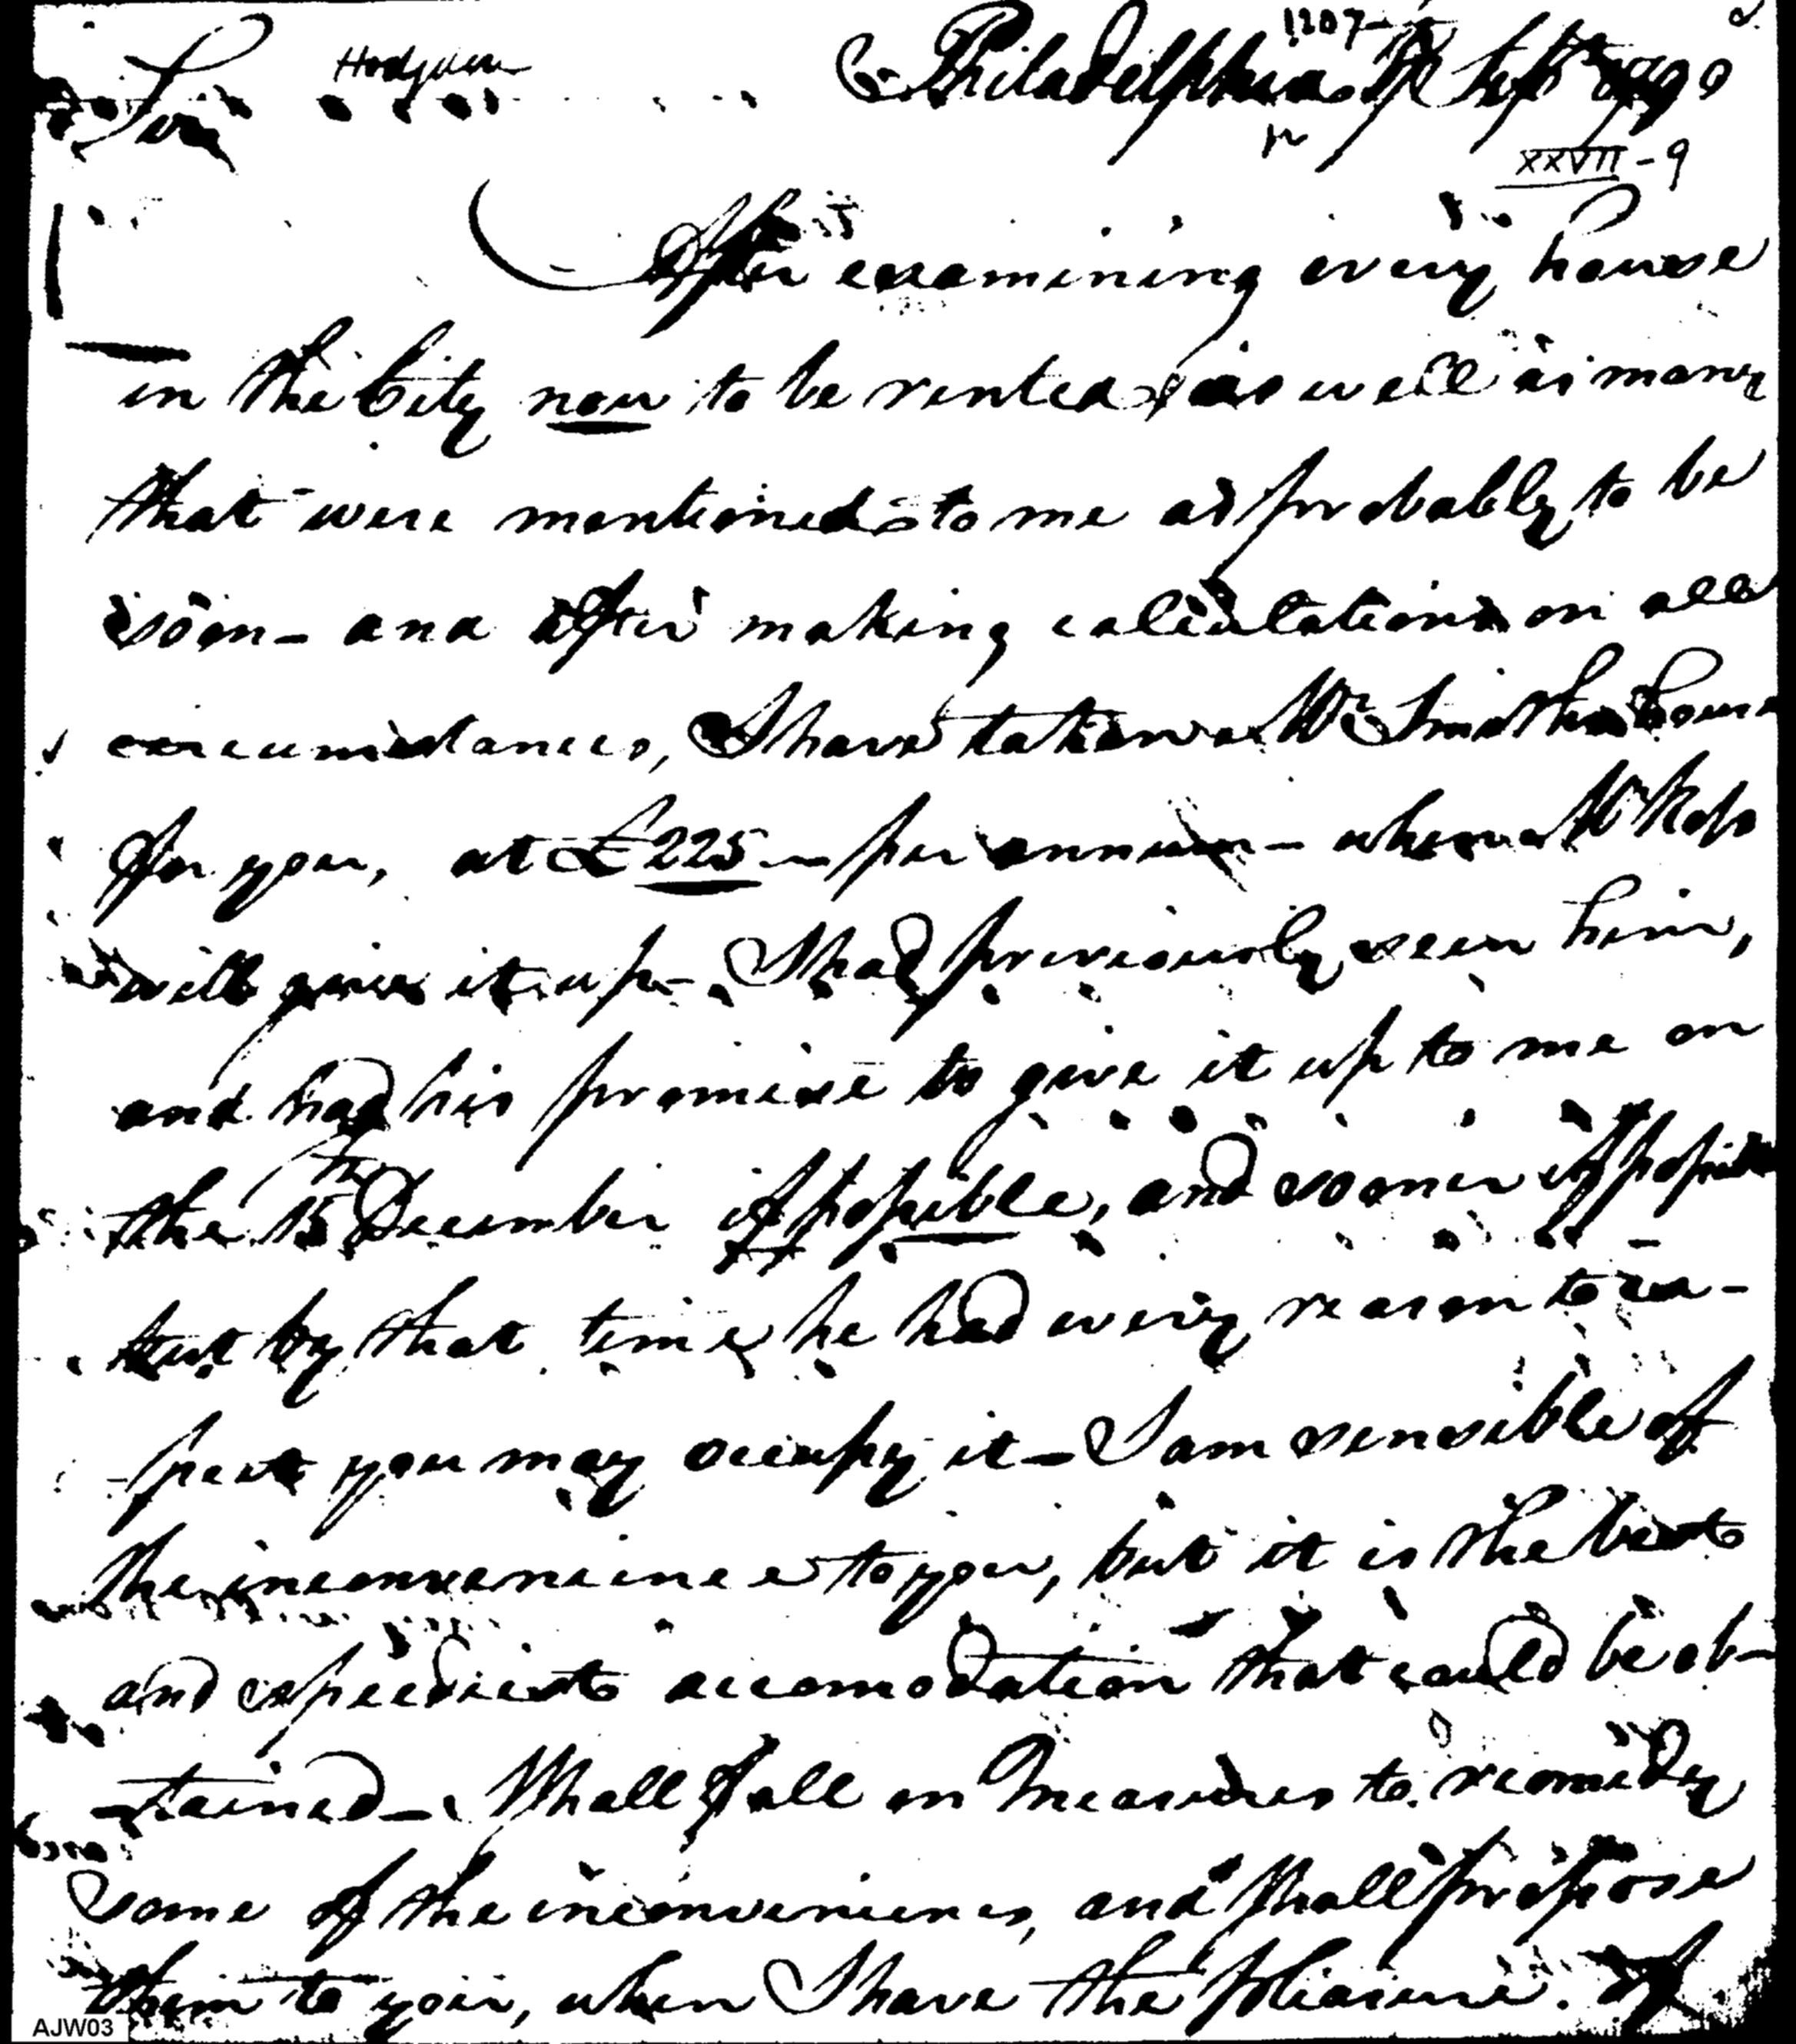 Hodgdon
1207
Philadelphia Sept 1790
Sir
XXVII-9
After examining every house
in the City now to be rented, as well as many
that were mentioned to me as probably to be
soon - and after making calculations on all
circumstances, I have taken Mr Smiths house
for you, at £225 - per annum - when Mr
will give it up - I had previously seen him,
and had his promise to give it up to me on
the 15th December if possible, and sooner if possible
but by that time he had every reason to ex-
-pect you may occupy it - I am sensible of
the inconvenience to you, but it is the best
and speediest accomodation that could be ob-
-tained - I shall fall on Measures to remedy
some of the inconveniences, and shall propose
them to you, when I have the pleasure of
AJW03